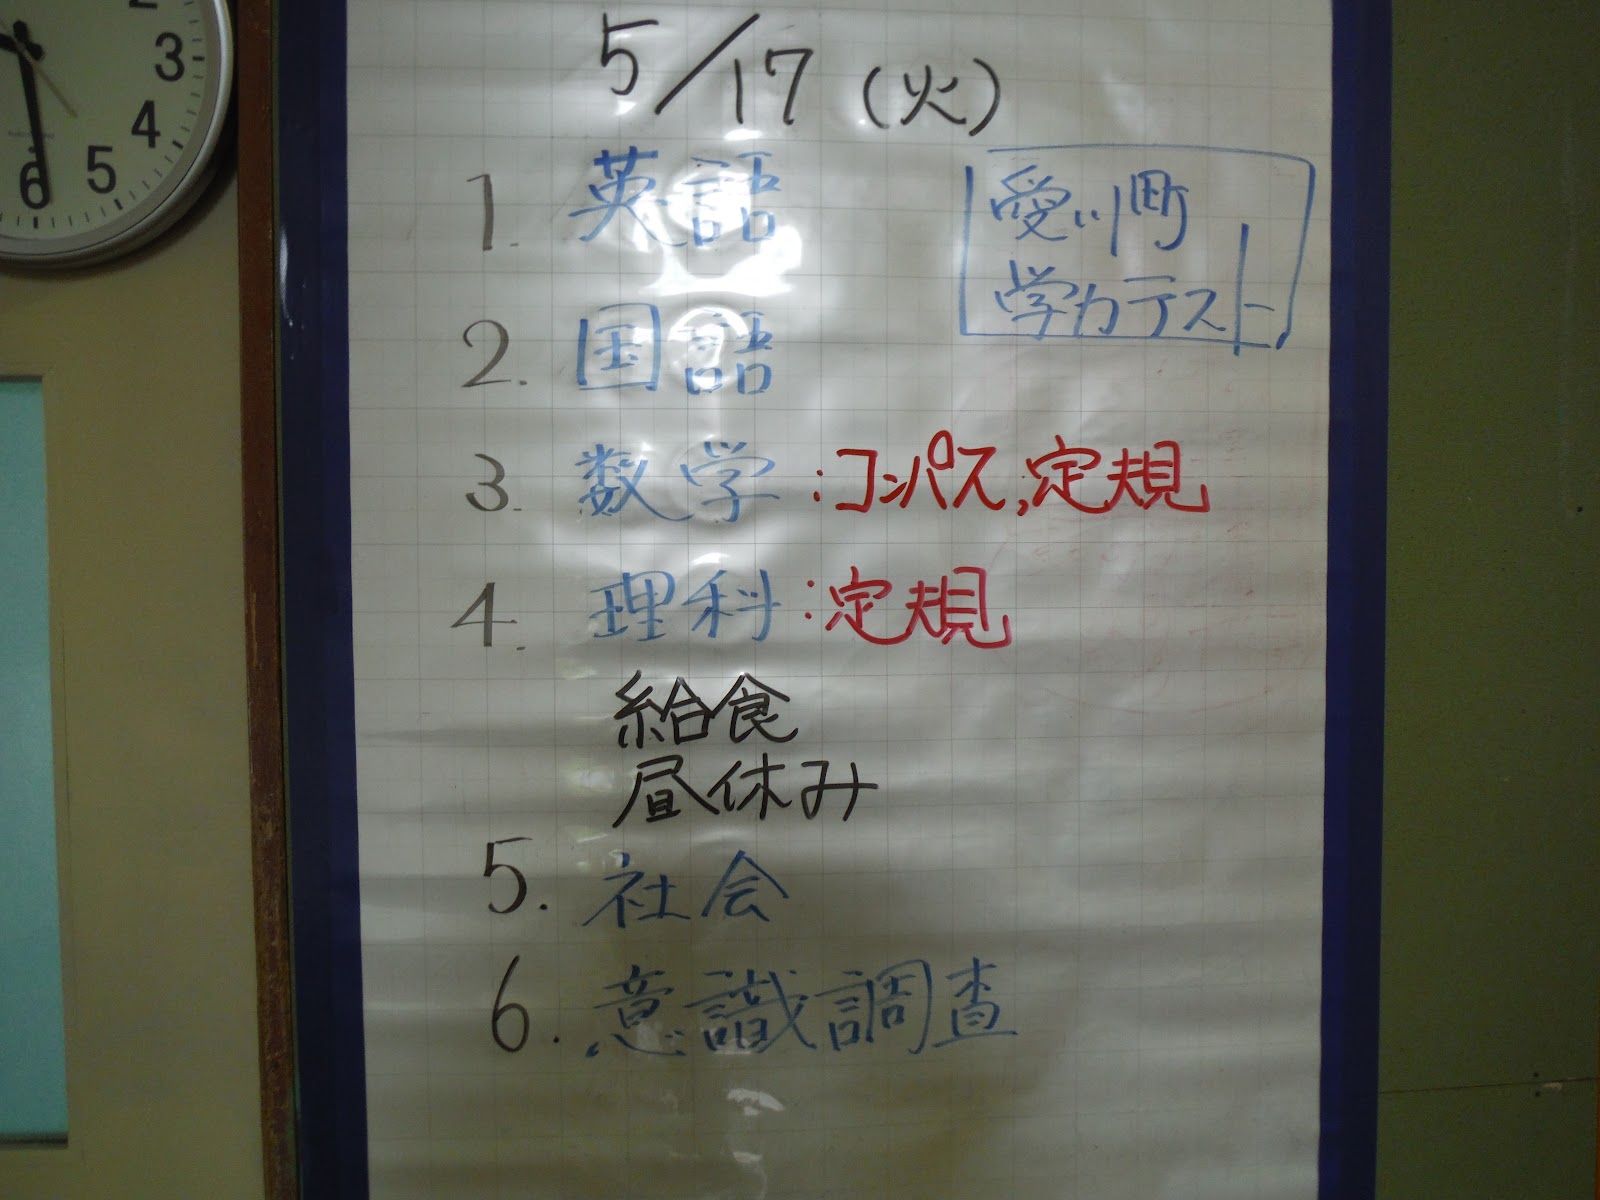 5/17 (火)
1. 英語
愛川町
学力テスト
2. 国語
3. 数学 : コンパス, 定規
4. 理科 : 定規
給食
昼休み
5. 社会
6. 意識調査
2
3
4
5
6